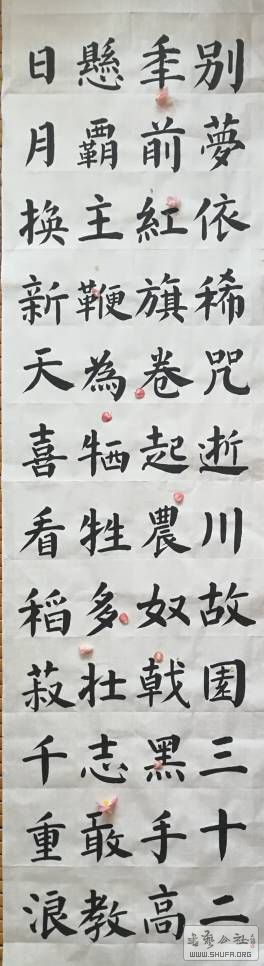 别夢依稀咒逝川故園三十二
秊前紅旗卷起農奴戟黑手高
懸覇主鞭為牺牲多壮志敢教
日月换新天喜看稻菽千重浪
WWW.SHUFA.ORG